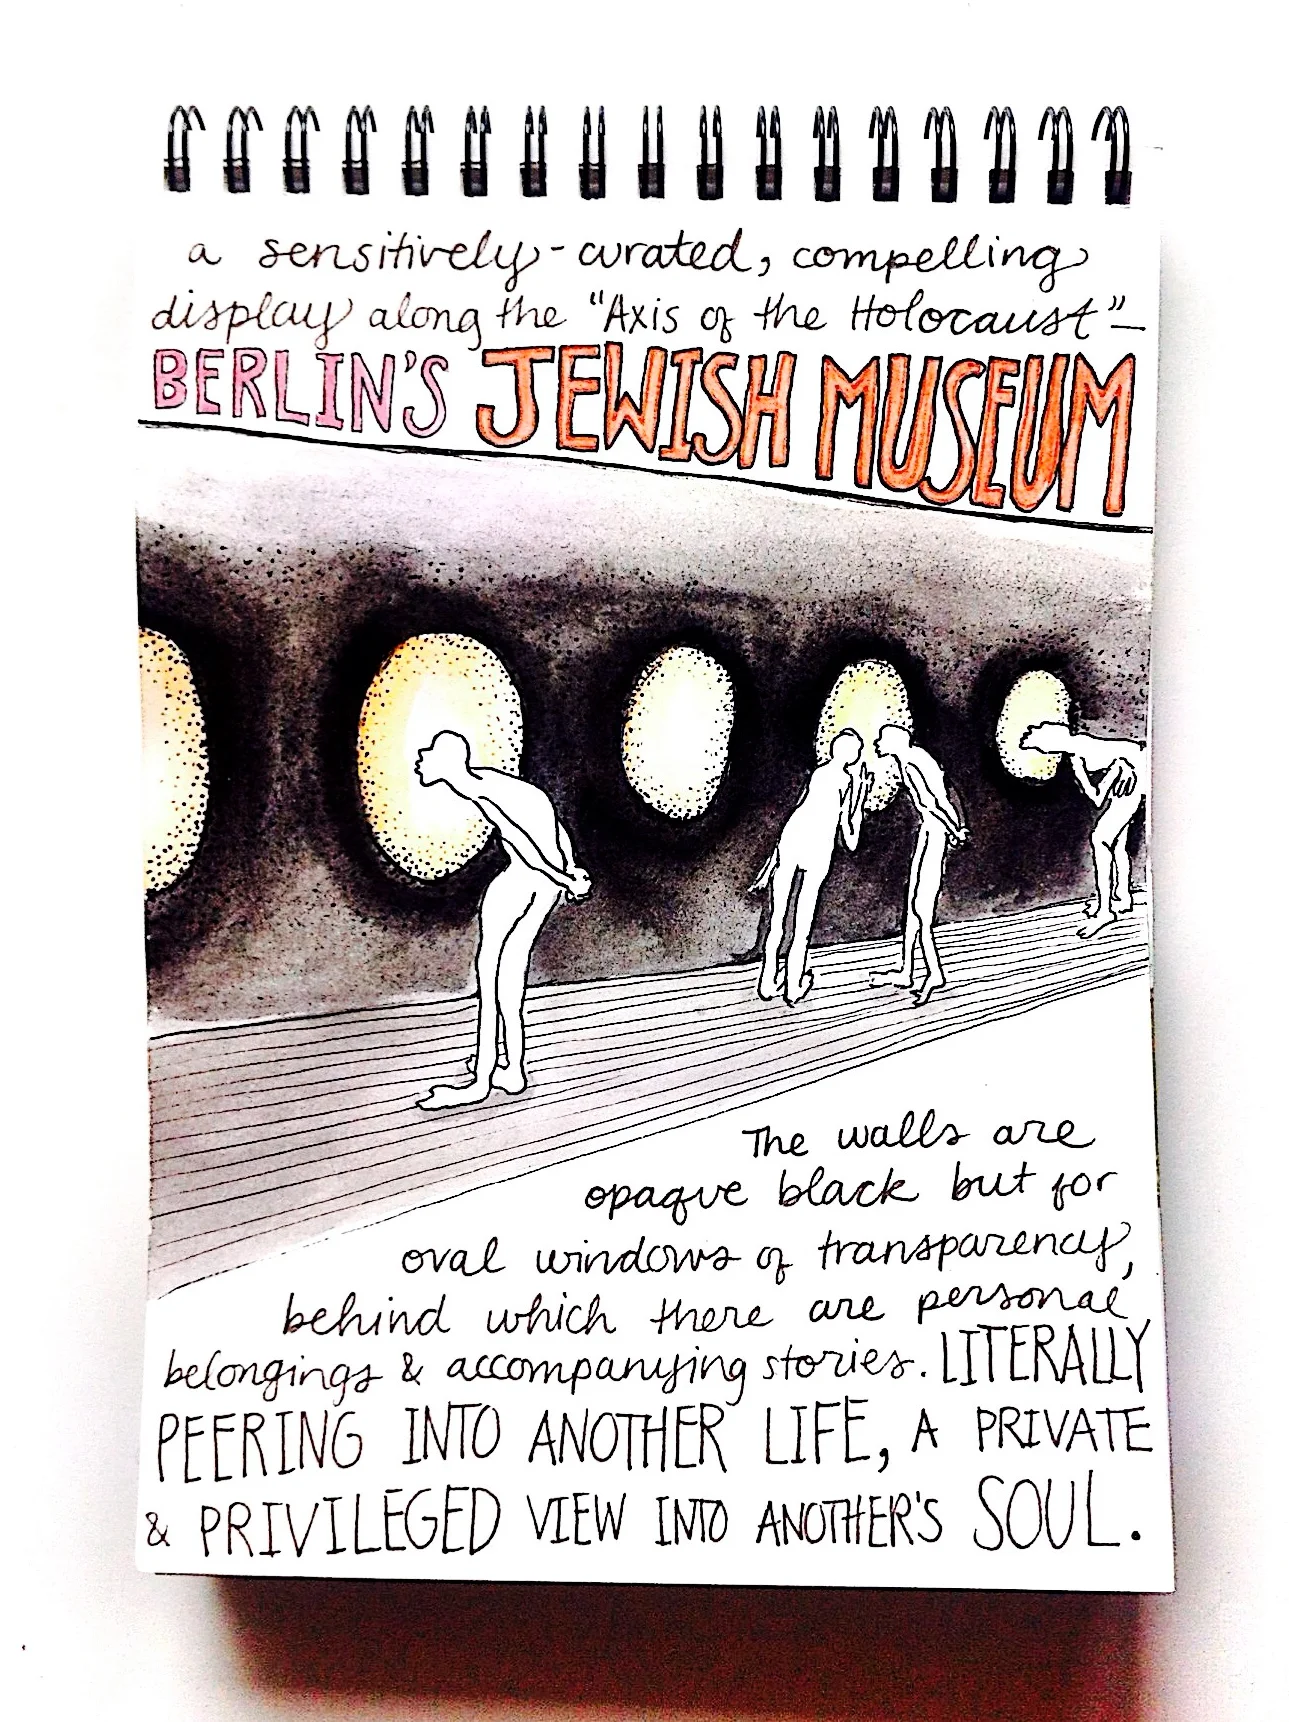 a sensitively-curated, compelling
display along the "Axis of the Holocaust"—
BERLIN'S JEWISH MUSEUM
The walls are
opaque black but for
oval windows of transparency,
behind which there are personal
belongings & accompanying stories. LITERALLY
PEERING INTO ANOTHER LIFE, A PRIVATE
& PRIVILEGED VIEW INTO ANOTHER'S SOUL.